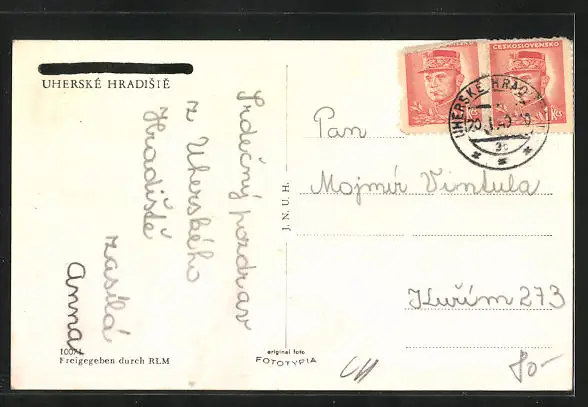 UHERSKÉ HRADIŠTĚ
Srdečný pozdrav
z Uherského
Hradiště
zasílá
Anna
1007/1
Freigegeben durch RLM
J. N. U. H.
original foto
FOTOTYPIA
ČESKOSLOVENSKO
Kčs
UHERSKÉ HRAD
Pan
Mojmír Vintula
Kuřim 273
80-